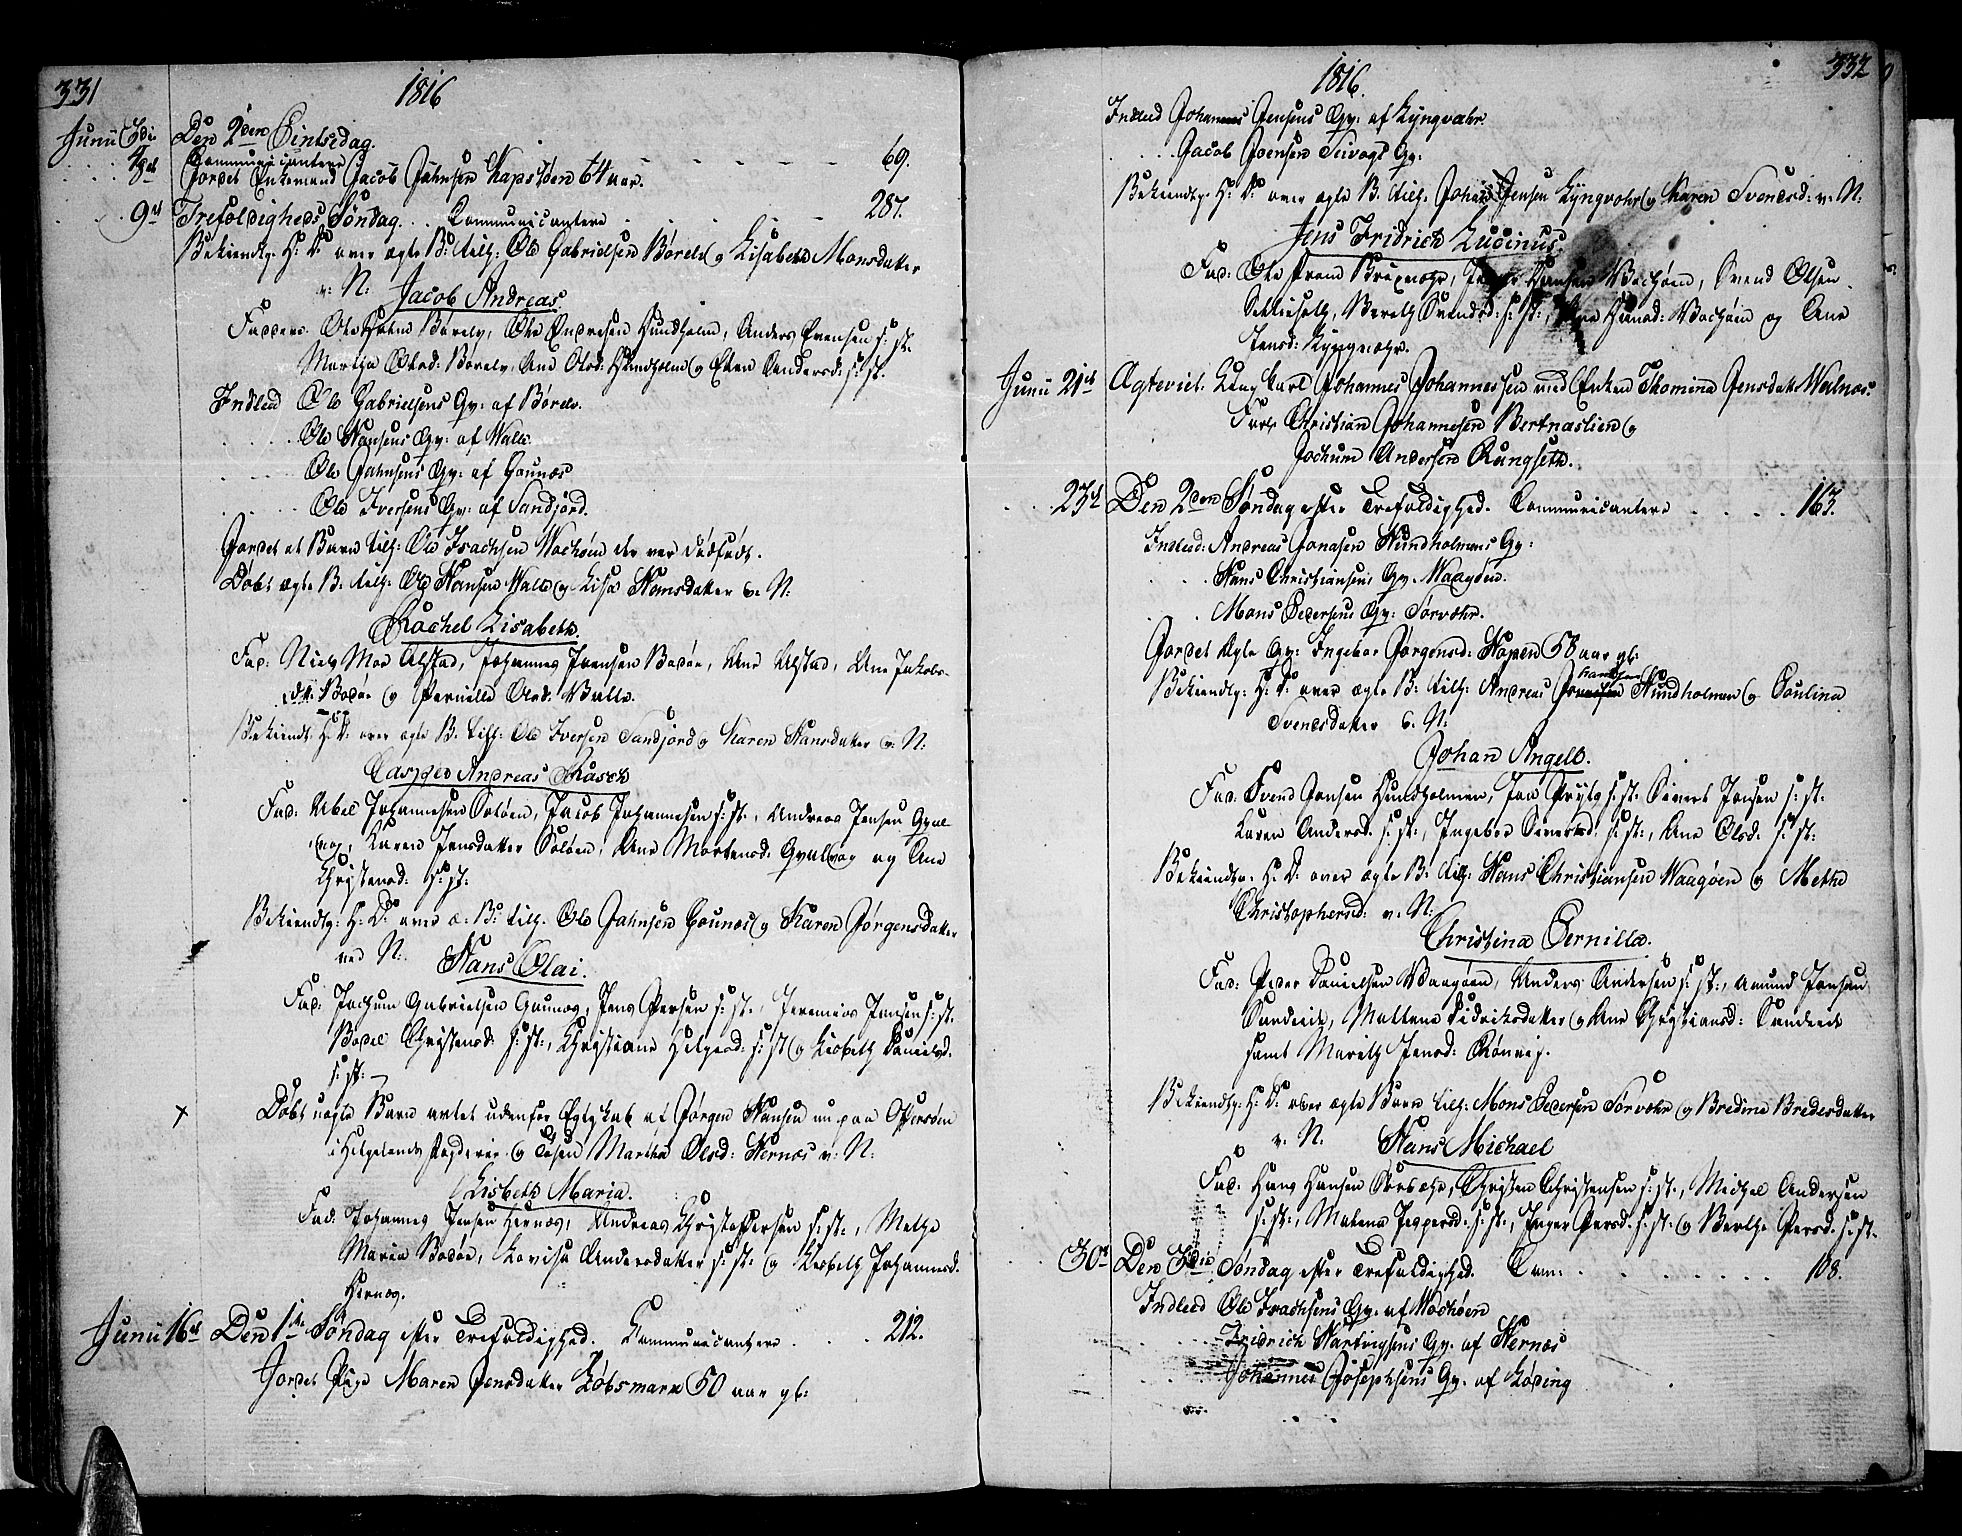 331
1816
Junii 3die Den 2den Pintsedag.
Communicantere 69.
8de Jordet Enkemand Jacob Jahnsen Kapstøen 64 aar.
9de Trefoldigheds Søndag. Communicantere 287.
Bekiendtg: H: D: over ægte B: tilh: Ole Gabrielsen Børelv og Lisabeth Monsdatter
v: N: Jacob Andreas.
Faddere. Ole Børelv, Ole Andresen Hundholm, Anders Evensen s: st:
Martha Olsd: Børelv, Ane Olsd: Hundholm og Elen Andersd: s: st:
Indled Ole Gabrielsens Qv: af Børelv.
Ole Hansens Qv: af Valle.
Ole Jahnsens Qv: af Gounæs
Ole Iversens Qv: af Sandjord.
Jordet et Barn tilh: Ole Isachsen Wochøen der var dødfødt.
Døbt ægte B. tilh: Ole Hansen Walle og Lisa Hansdatter v: N:
Rachel Lisabeth.
Fad: Niels Moe Alstad, Johannes Iversen Bodøe, Ane Alstad, Ane Jakobs-
dtt: Bodøe og Pernille Olsd: Valle.
Bekiendt: H: D: over ægte B. tilh: Ole Iversen Sandjord og Karen Hansdatter v: N:
Casper Andreas Rasch
Fad: Abel Johannesen Soløen, Jacob Johannesen s: st:, Andreas Jensen Qval-
vog, Karen Jensdatter Soløen, Ane Mortensd: Qvalvog og Ane
Christensd: s: st:
Bekiendtg: H: D: over æ: B: tilh: Ole Jahnsen Gounæs og Karen Jørgensdatter
ved N: Hans Olai.
Fad: Jochum Gabrielsen Gaunæs, Jens Persen s: st:, Jeremias Jensen s: st:
Bodel Christensd: s: st:, Christiane s: st: og Lisbeth Danielsd:
s: st:
Døbt uægte Barn avlet udenfor Egteskab af Jørgen Hansen nu paa Offersøen
i Helgelands Fogderie og Tøsen Martha Olsd: Hernæs v: N:
Lisbeth Maria.
Fad: Johannes Jensen Hernæs, Andreas Christophersen s: st:, Methe
Maria Bodøe, Lovisa Andersdatter s: st: og Lisbeth Johannesd:
Hernæs.
Junii 16de Den 1ste Søndag efter Trefoldighed. Communicantere 212.
Jordet Pige Maren Jensdatter Løbsmark 50 aar gl:
1816.
332
Indled Johannes Jensens Qv: af Lyngvæhr.
Jacob Joensen Seivogs Qv:
Bekiendtg: H: D: over ægte B. tilh: Johans Jensen Lyngvæhr og Karen Svendsd: v: N:
Jens Fridrich Lucinus.
Fad: Ole Svend Olsen
Berith Svendsd: s: st:, Hansd: Wochøen og Ane
Jensd: Lyngvæhr.
Junii 21de Agteviet: Ung Carl Johannes Johannessen med Enken Thomina Jensdatt: Walnæs.
Forl: Christian Johannesen Bertnæslien og
Jochum Andersen Rungseth.
23de Den 2den Søndag efter Trefoldighed. Communicantere 163.
Indled: Andreas Jonasen Hundholmens Qv:
Hans Christiansens Qv: Waagøen.
Mons Pedersens Qv: Sørvæhr.
Jordet Ægte Qv: Ingebor Jørgensd: Hopen 58 aar gl:
Bekiendtg: H: D: over ægte B: tilh: Andreas Hansen Hundholmen og Poulina
Svendsdatter v: N:
Johan Angell.
Fad: Svend Jonsen Hundholmen, Jon s: st: Sivert Jensen s: st:
Karen Andersd: s: st:, Ingebor Sivertsd: s: st:, Ane Olsd: s: st:
Bekiendtg: H: D: over ægte B: tilh: Hans Christiansen Waagøen og Methe
Christophersd: v: N:
Christina Pernilla.
Fad: Peder Danielsen Waagøen, Anders Andersen s: st:, Amund Jonsen
Sundeid, Maltena Didriksdatter og Ane Christiansd: Sundeid
samt Marith Jensd: Rønvig.
Bekiendtg: H: D: over ægte Barn tilh: Mons Pedersen Sørvæhr og Bredine Bredesdatter
v: N: Hans Michael
Fad: Hans Hansen Sørvæhr, Christen Christensen s: st:, Michel Andersen
s: st:, Malena Jeppesd: s: st:, Inger Persd: s: st: og Berthe Persd: s: st:
30de Den 3die Søndag efter Trefoldighed. Com: 108.
Indled Ole Isachsens Qv: af Wochøen
Fridrich Hartvigsens Qv: af Hernæs
Johannes Josephsens Qv: af Løding